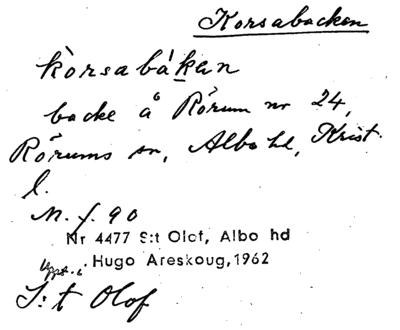 Korsabacken
kòrsabákan
backe å Rörum nr 24,
Rörums sn, Albo hd, Krist.
l.
N. f. 90
Nr 4477 S:t Olof, Albo hd
Hugo Areskoug, 1962
Uppt. i
S:t Olof